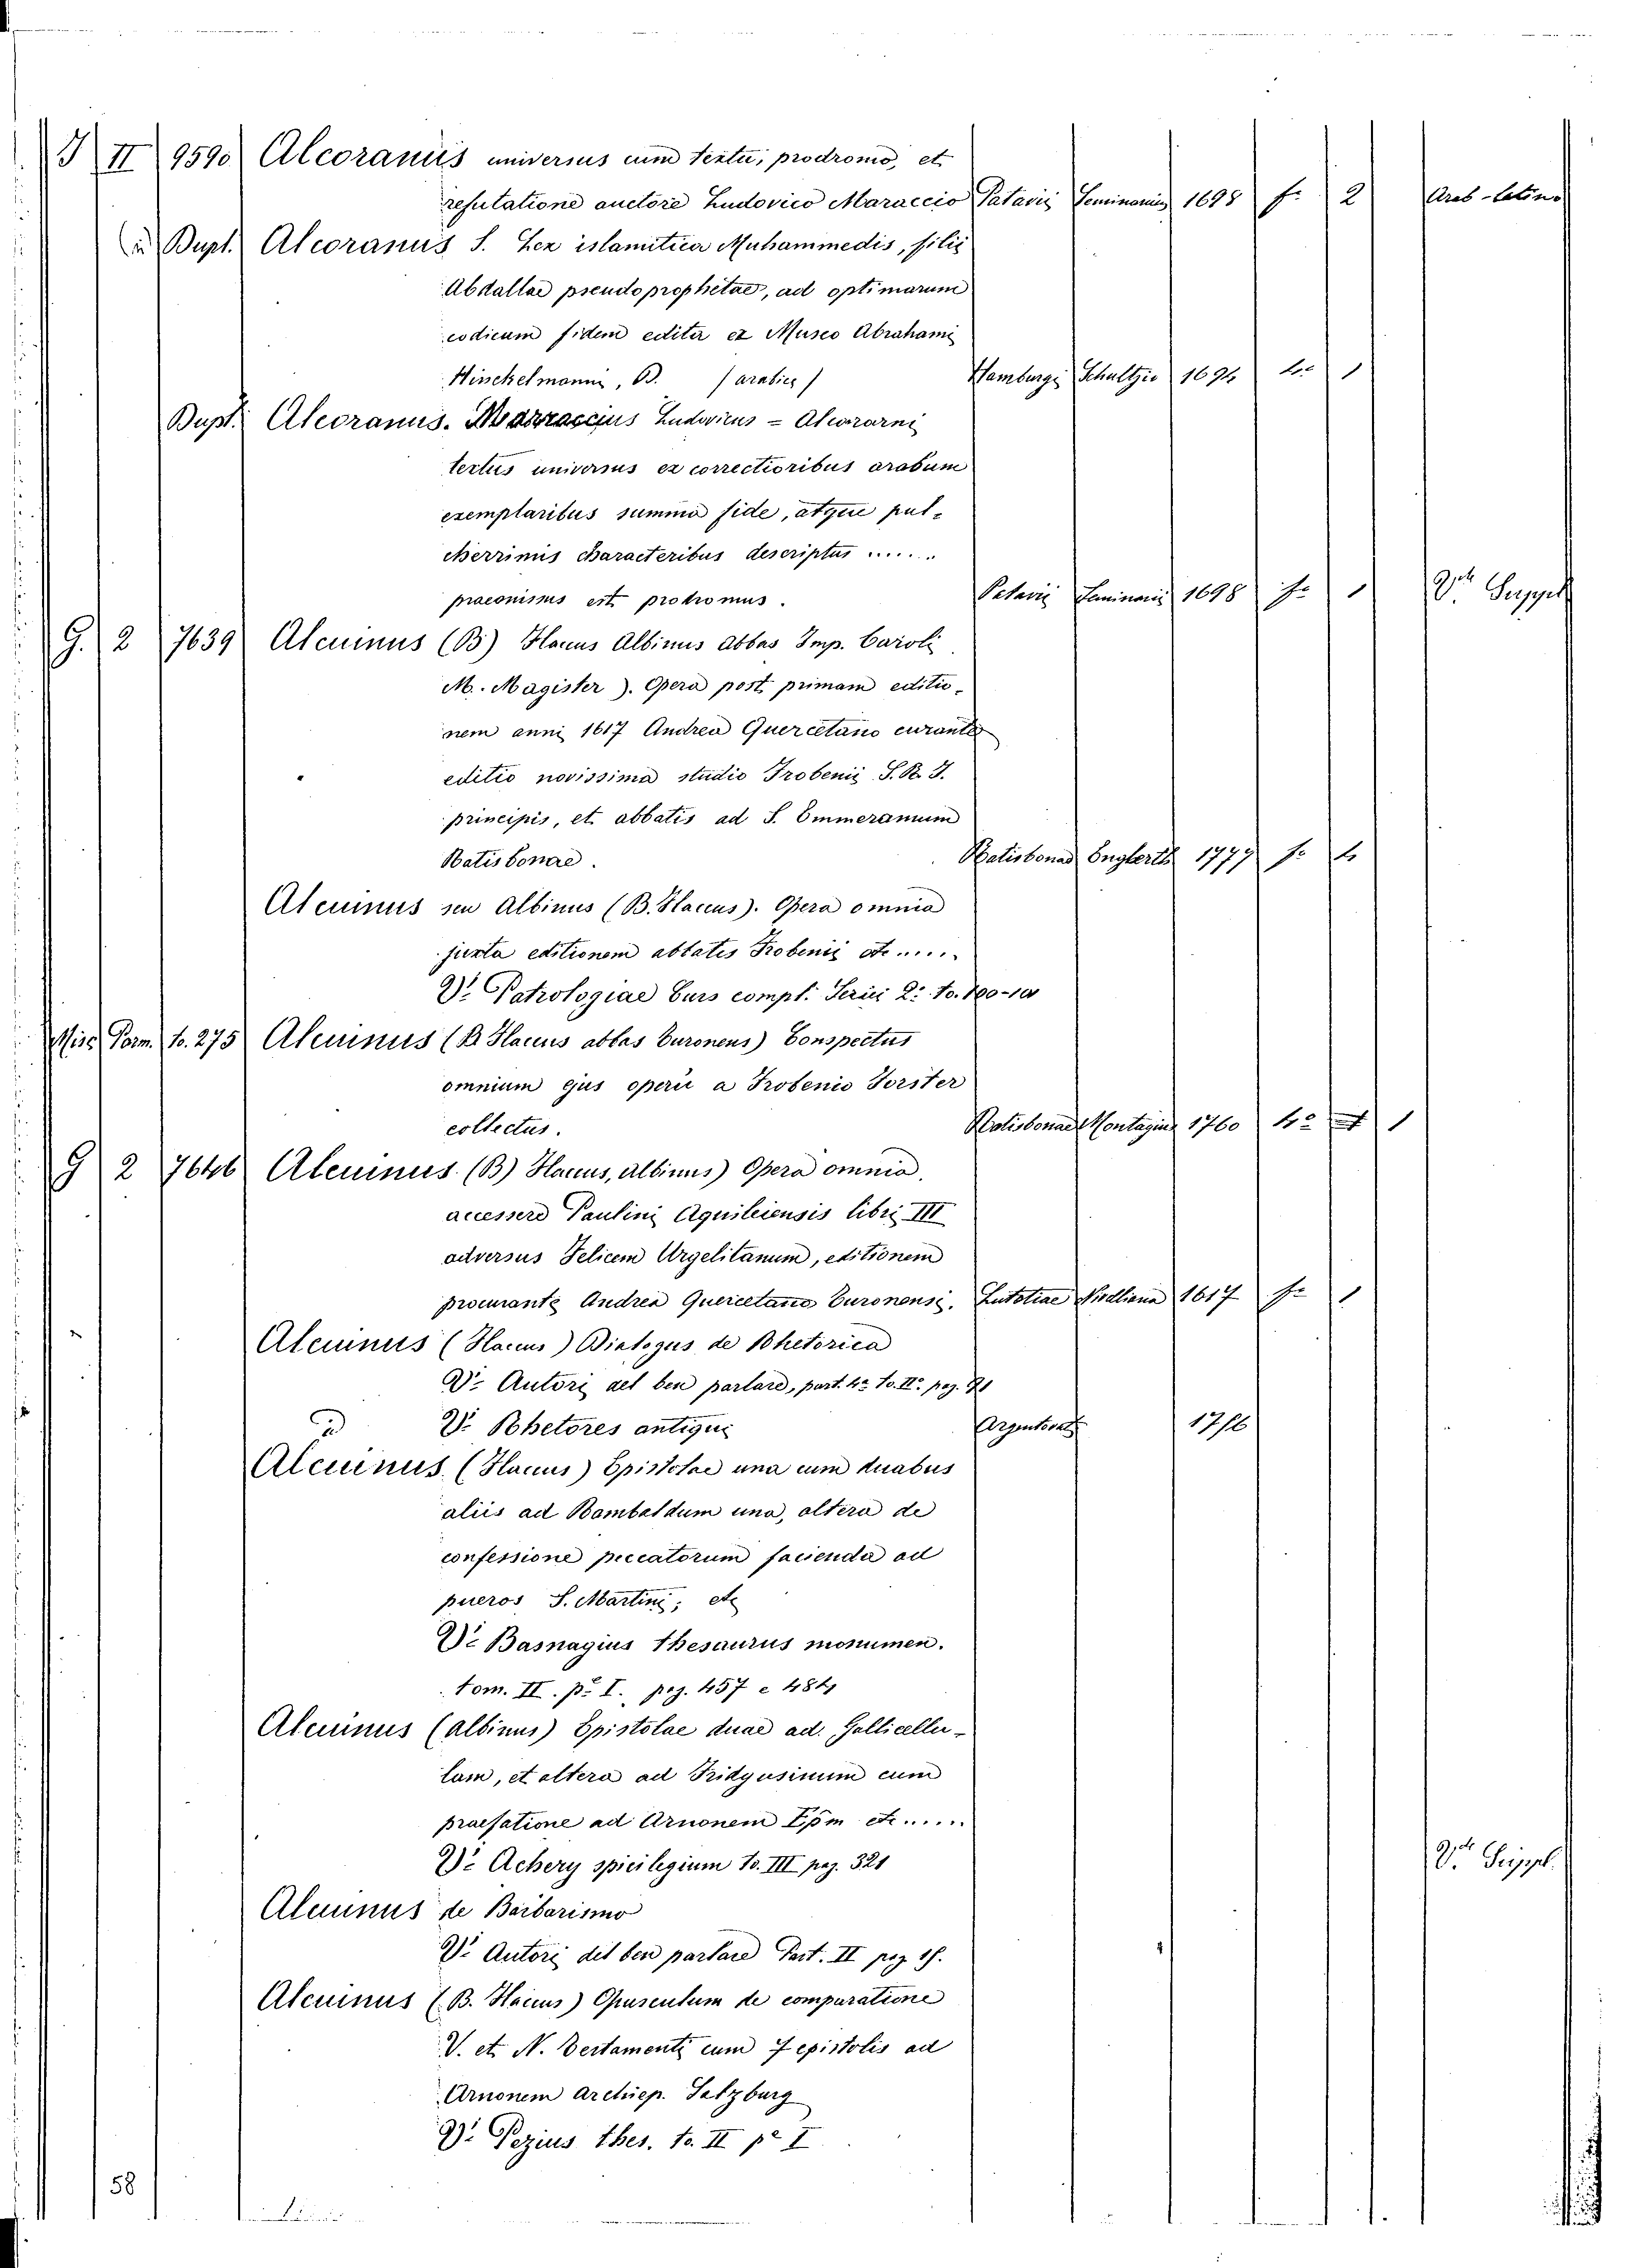 J II 9590 Alcoranus universus cum textu, prodromo, et
refutatione auctore Ludovico Maraccio Patavii Seminarii 1698 fo 2 Arab-Latino
Dupl. Alcoranus S. Lex islamitica Muhammedis, filii
Abdallae pseudoprophetae, ad optimarum
codicum fidem edita ex Museo Abrahami
Hinckelmanni, D. (arabice) Hamburgi Schultzio 1694 4o 1
Dupl. Alcoranus. Marraccius Ludovicus = Alcorani
textus universus ex correctioribus arabum
exemplaribus summa fide, atque pul-
cherrimis characteribus descriptus ......
praeonissus est prodromus. Patavii Seminarii 1698 fo 1 Vi Suppl
G. 2 7639 Alcuinus (B) Flacus Albinus abbas Imp. Caroli
M. Magister). Opera post primam editio-
nem anni 1617 Andrea Quercetano curante
editio novissima studio Frobenii S. R. I.
principis, et abbatis ad S. Emmeramum
Ratisbonae. Ratisbonae Englerth 1777 fo 4
Alcuinus seu Albinus (B. Flaccus). Opera omnia
juxta editionem abbatis Frobenii etc .....
Vi Patrologiae Curs compl. Serie 2a to. 100-101
Misc Parm. to. 275 Alcuinus (B Flacus abbas Turonens) Conspectus
omnium ejus operu a Frobenio Forster
collectus. Ratisbonae Montagiu 1760 4o 1
G 2 7646 Alcuinus (B) Flacus, albinus) Opera omnia.
accessere Paulini Aquileiensis libri III
adversus Felicem Urgelitanum, editionem
procurante Andrea Quercetano Turonensi. Lutetiae Nivelliana 1617 fo 1
Alcuinus (Flacus) Dialogus de Rhetorica
Vi Autori del ben parlare, part. 4a to. IIo pag. 71
Vi Rhetores antiqui Argentorat 1756
Alcuinus (Flacus) Epistolae una cum duabus
aliis ad Rambaldum una, altera de
confessione peccatorum facienda ad
pueros S. Martini, etc
Vi Basnagius thesaurus monumen.
tom. II. pe I. pag. 457 e 484
Alcuinus (albinus) Epistolae duae ad. Gallicellu-
lam, et altera ad Fridgusinum cum
praefatione ad Arnonem Epm etc .....
Vi Achery spicilegium to. III pag. 321 Vi Suppl.
Alcuinus de Barbarismo
Vi Autori del ben parlare Part. II pag 15.
Alcuinus (B. Flacus) Opusculum de comparatione
V. et N. Testamenti cum 7 epistolis ad
Arnonem archiep. Salzburg
Vi Pezius thes. to. II pe I
58